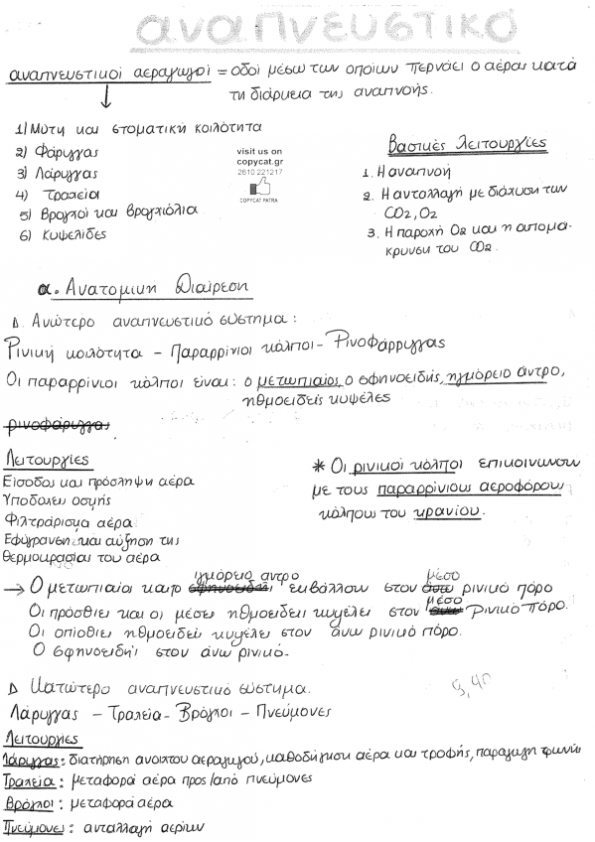 αναπνευστικό
αναπνευστικοί αεραγωγοί = οδοί μέσω των οποίων περνάει ο αέρας κατά
τη διάρκεια της αναπνοής.
1) Μύτη και στοματική κοιλότητα
2) Φάρυγγας
3) Λάρυγγας
4) Τραχεία
5) Βρόγχοι και βρογχιόλια
6) Κυψελίδες
visit us on
copycat.gr
2610 221217
COPYCAT PATRA
Βασικές λειτουργίες
1. Η αναπνοή
2. Η ανταλλαγή με διάχυση των
CO2, O2
3. Η παροχή O2 και η απομά-
κρυνση του CO2.
α. Ανατομική Διαίρεση
Δ. Ανώτερο αναπνευστικό σύστημα:
Ρινική κοιλότητα - Παραρρίνιοι κόλποι - Ρινοφάρρυγγας
Οι παραρρίνιοι κόλποι είναι: ο μετωπιαίος, ο σφηνοειδής, ιγμόρειο άντρο,
ηθμοειδείς κυψέλες
ρινοφάρυγγας
Λειτουργίες
Είσοδος και πρόσληψη αέρα
Υποδοχέας οσμής
Φιλτράρισμα αέρα
Εφύγρανση και αύξηση της
θερμοκρασίας του αέρα
* Οι ρινικοί κόλποι επικοινωνούν
με τους παραρρίνιους αεροφόρους
κόλπους του κρανίου.
→ Ο μετωπιαίος και το ιγμόρειο άντρο εκβάλλουν στον μέσο ρινικό πόρο
Οι πρόσθιες και οι μέσες ηθμοειδείς κυψέλες στον μέσο ρινικό πόρο.
Οι οπίσθιες ηθμοειδείς κυψέλες στον άνω ρινικό πόρο.
Ο σφηνοειδής στον άνω ρινικό.
Δ Κατώτερο αναπνευστικό σύστημα.
Λάρυγγας - Τραχεία - Βρόγχοι - Πνεύμονες
Λειτουργίες
Λάρυγγας: διατήρηση ανοιχτού αεραγωγού, καθοδήγηση αέρα και τροφής, παραγωγή φωνής
Τραχεία: μεταφορά αέρα προς/από πνεύμονες
Βρόγχοι: μεταφορά αέρα
Πνεύμονες: ανταλλαγή αερίων